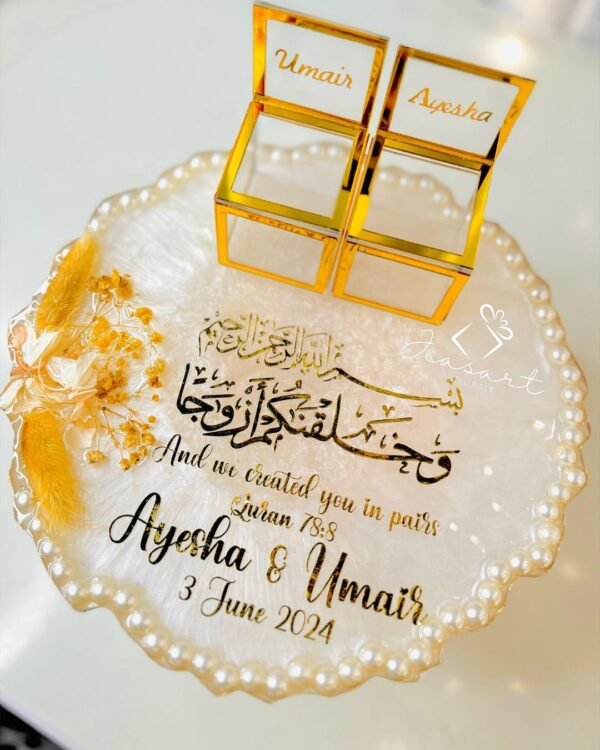 Umair
Ayesha
بسم الله الرحمن الرحيم
وخلقنكم أزوجا
And we created you in pairs
Quran 78:8
Ayesha & Umair
3 June 2024
CRAFT